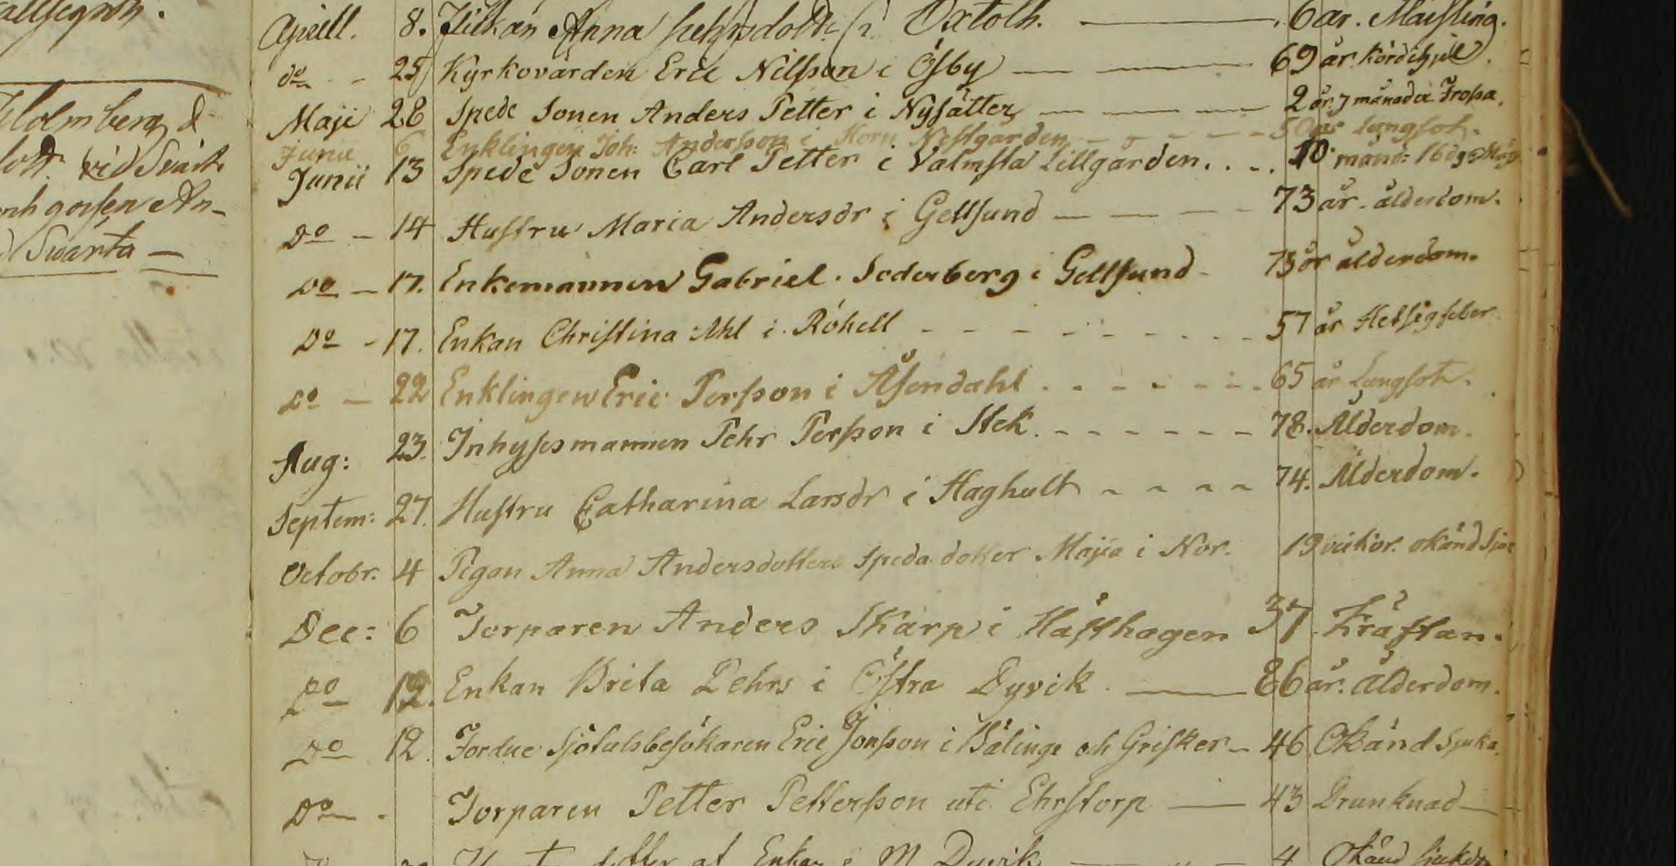 Holmberg &
dott. vid Svärt-
och gossen An-
Svärta —
Aprill. 8. Flickan Anna i Oxtolh. — 6 år. Mässling.
do - 25 Kyrkovärden Eric Nilsson i Ösby — 69 år
Maji 28 Späde Sonen Anders Petter i Nysätter — 2 år 7 månader Trossa.
Junii 6 Enklingen Joh: Andersson i Horn Nestgården - - - 50 år Lungsot.
Junii 13 Späde Sonen Carl Petter i Valmsta Lillgården. . - . 10 månd: 16 dgr
Do - 14 Hustru Maria Andersdr i Gellsund — — — 73 år. ålderdom.
Do - 17. Enkemannen Gabriel. Söderberg i Gellsund - 73 år ålderdom.
Do - 17. Enkan Christina Ahl i Röhell - - - - - 57 år Hetsigfeber
Do - 22 Enklingen Eric Persson i Åsendahl . - - - - - 65 år Lungsot.
Aug: 23. Inhysesmannen Pehr Persson i Stek. - - - - - - 78. Ålderdom.
Septem: 27. Hustru Catharina Larsdr i Haghult - - - - 74. Ålderdom.
Octobr. 4 Pigan Anna Andersdotters späda dotter Maja i Nor. 19 veckor. okänd
Dec: 6 Torparen Anders Skarp i Hästhagen 37. Kräftan.
Do 12. Enkan Brita Pehrs i Östra Dyvik. — 86 år. ålderdom.
Do 12. Fordne Sjötulsbesökaren Eric Jonsson i Bälinge och Grisker - 46 Okänd Sjuka.
Do - Torparen Petter Pettersson uti Ehrstorp — 43 Drunknad —
dotter af Enkan i Dyvik — 4 Okänd